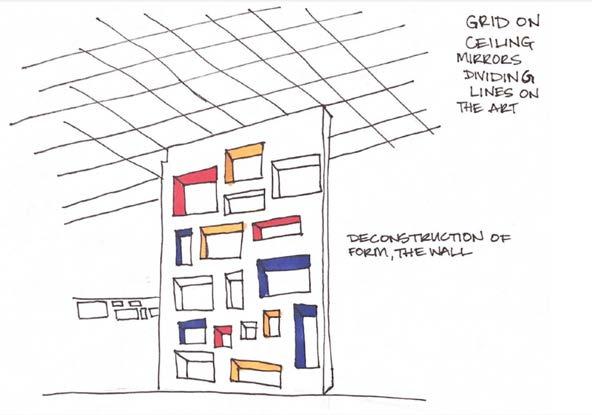 GRID ON
CEILING
MIRRORS
DIVIDING
LINES ON
THE ART
DECONSTRUCTION OF
FORM, THE WALL